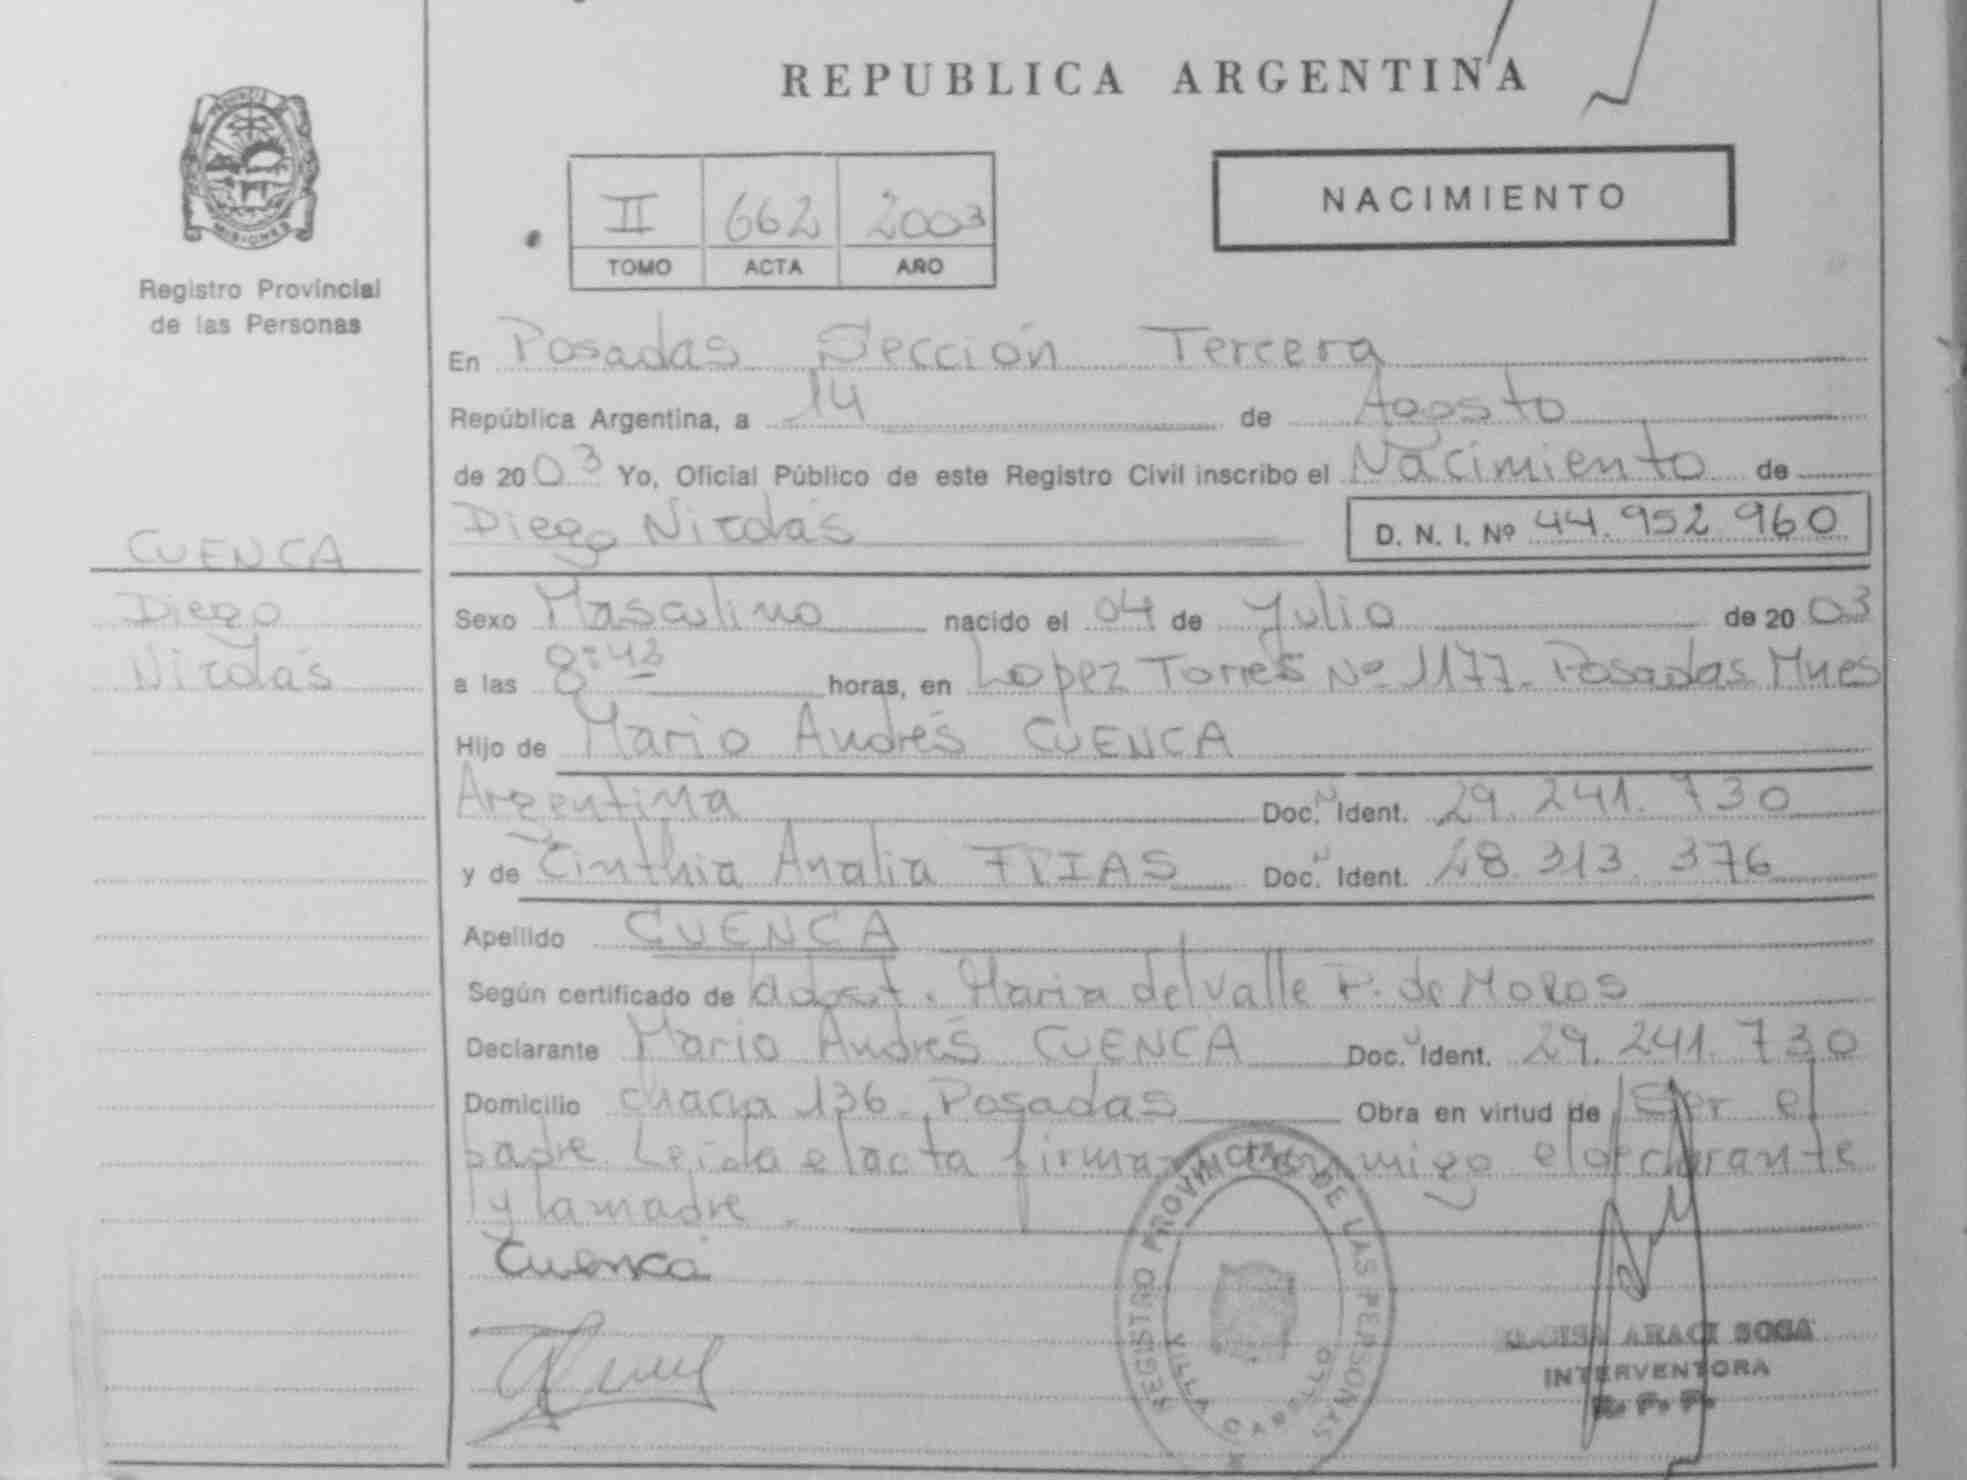 REPUBLICA ARGENTINA
PROVINCIA
MISIONES
Registro Provincial
de las Personas
II 662 2003
TOMO ACTA AÑO
NACIMIENTO
En Posadas Sección Tercera
República Argentina, a 14 de Agosto
de 2003 Yo, Oficial Público de este Registro Civil inscribo el Nacimiento de
Diego Nicolás D. N. I. Nº 44.952 960
CUENCA
Diego
Nicolás
Sexo Masculino nacido el 04 de Julio de 2003
a las 8:43 horas, en Lopez Torres Nº 1177. Posadas Mnes
Hijo de Mario Andrés CUENCA
Argentina Doc. N Ident. 29.241.730
y de Cinthia Analia FRIAS Doc. N Ident. 28.313.376
Apellido CUENCA
Según certificado de Maria del Valle P. de
Declarante Mario Andrés CUENCA Doc. N Ident. 29.241.730
Domicilio chacra 136. Posadas Obra en virtud de Ser el
padre. Leida el acta firman conmigo el declarante
y la madre.
Cuenca
REGISTRO PROVINCIAL DE LAS PERSONAS
VILLA CABELLO
ARACI SOSA
INTERVENTORA
R. P. P.